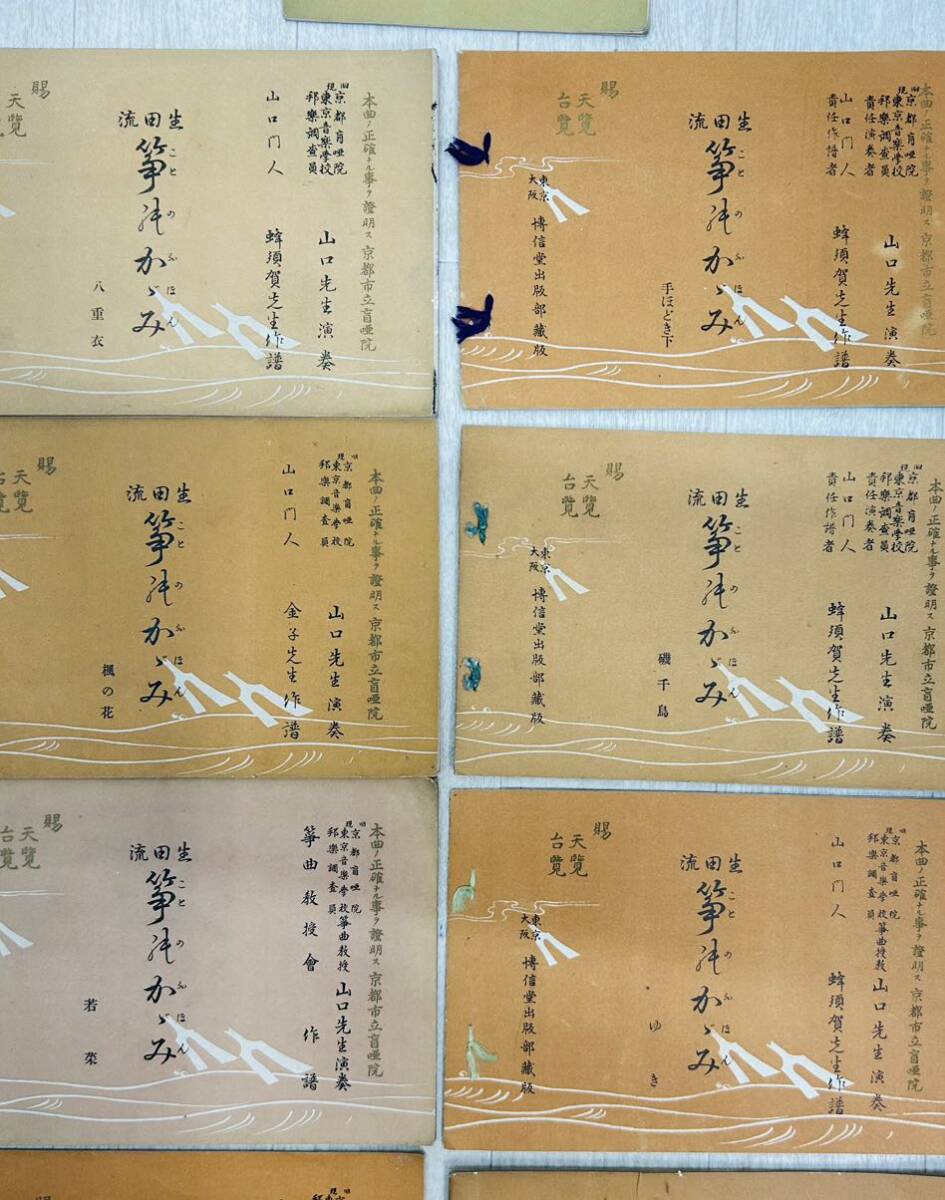 本曲ノ正確ナル事ヲ證明ス 京都市立盲唖院
旧京都盲唖院
現東京音樂学校
邦樂調査員
責任演奏者 山口先生演奏
山口門人
責任作譜者 蜂須賀先生作譜
生田流
筝能かゞみ
手ほどき下
賜
天覧
台覧
東京
大阪 博信堂出版部藏版
本曲ノ正確ナル事ヲ證明ス 京都市立盲唖院
旧京都盲唖院
現東京音樂学校
邦樂調査員 山口先生演奏
山口門人 蜂須賀先生作譜
生田流
筝能かゞみ
八重衣
賜
天覧
本曲ノ正確ナル事ヲ證明ス 京都市立盲唖院
旧京都盲唖院
現東京音樂学校
邦樂調査員
責任演奏者 山口先生演奏
山口門人
責任作譜者 蜂須賀先生作譜
生田流
筝能かゞみ
磯千鳥
賜
天覧
台覧
東京
大阪 博信堂出版部藏版
本曲ノ正確ナル事ヲ證明ス 京都市立盲唖院
旧京都盲唖院
現東京音樂学校
邦樂調査員 山口先生演奏
山口門人 金子先生作譜
生田流
筝能かゞみ
楓の花
賜
天覧
台覧
本曲ノ正確ナル事ヲ證明ス 京都市立盲唖院
旧京都盲唖院
現東京音樂学校筝曲教授
邦樂調査員 山口先生演奏
山口門人 蜂須賀先生作譜
生田流
筝能かゞみ
ゆき
賜
天覧
台覧
東京
大阪 博信堂出版部藏版
本曲ノ正確ナル事ヲ證明ス 京都市立盲唖院
旧京都盲唖院
現東京音樂学校筝曲教授
邦樂調査員 山口先生演奏
筝曲教授會作譜
生田流
筝能かゞみ
若菜
賜
天覧
台覧